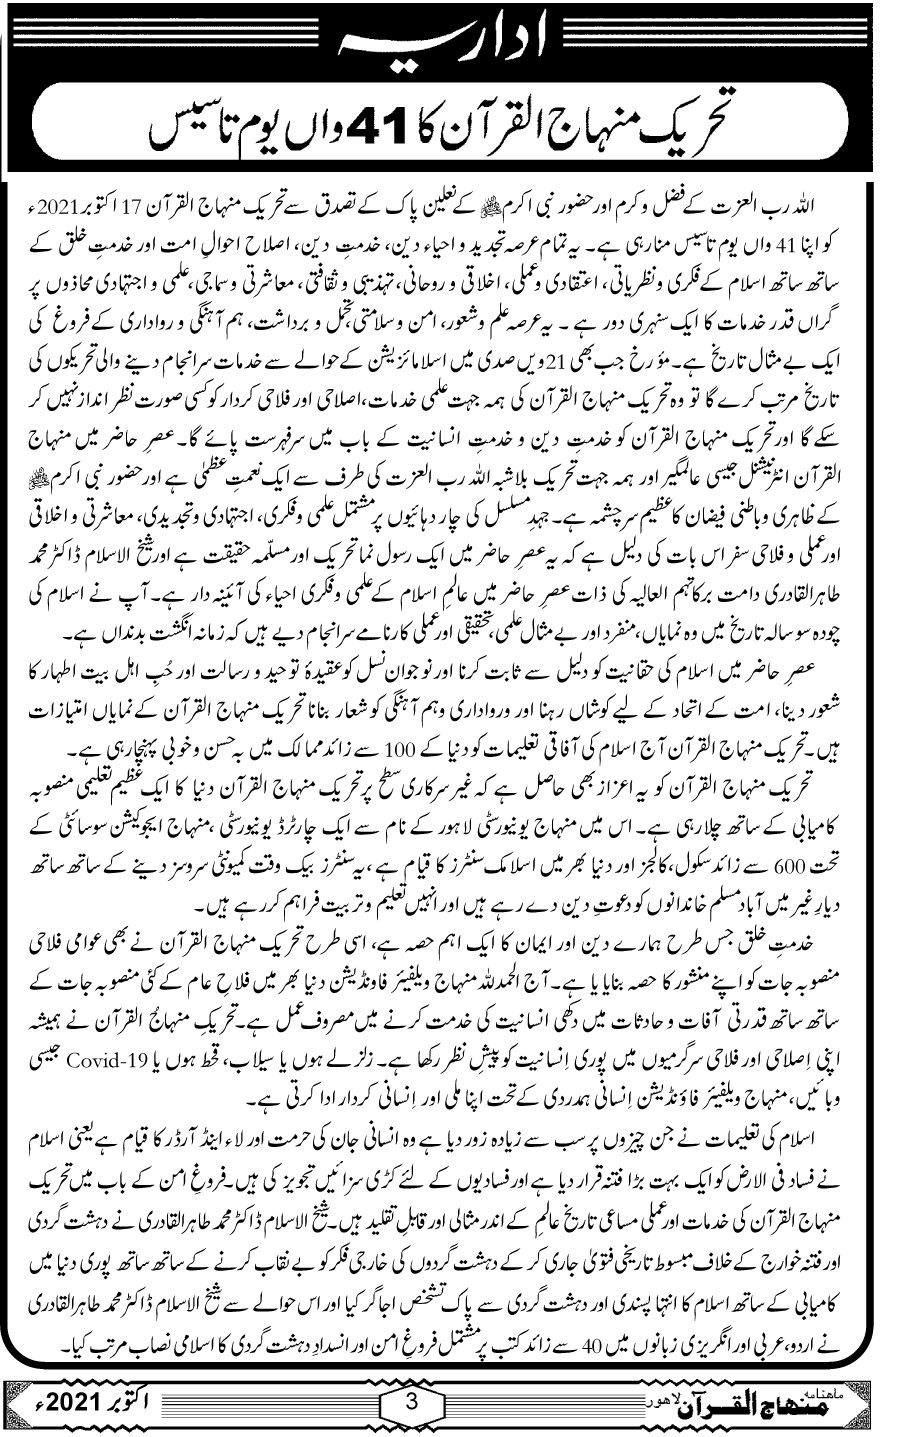 اداریہ
تحریک منہاج القرآن کا 41 واں یوم تاسیس
اللہ رب العزت کے فضل و کرم اور حضور نبی اکرم ﷺ کے نعلین پاک کے تصدق سے تحریک منہاج القرآن 17 اکتوبر 2021ء
کو اپنا 41 واں یوم تاسیس منا رہی ہے۔ یہ تمام عرصہ تجدید و احیاء دین، خدمتِ دین، اصلاح احوالِ امت اور خدمتِ خلق کے
ساتھ ساتھ اسلام کے فکری و نظریاتی، اعتقادی و عملی، اخلاقی و روحانی، تہذیبی و ثقافتی، معاشرتی و سماجی، علمی و اجتہادی محاذوں پر
گراں قدر خدمات کا ایک سنہری دور ہے ۔ یہ عرصہ علم و شعور، امن و سلامتی، تحمل و برداشت، ہم آہنگی و رواداری کے فروغ کی
ایک بے مثال تاریخ ہے۔ مؤرخ جب بھی 21ویں صدی میں اسلامائزیشن کے حوالے سے خدمات سرانجام دینے والی تحریکوں کی
تاریخ مرتب کرے گا تو وہ تحریک منہاج القرآن کی ہمہ جہت علمی خدمات، اصلاحی اور فلاحی کردار کو کسی صورت نظر انداز نہیں کر
سکے گا اور تحریک منہاج القرآن کو خدمتِ دین و خدمتِ انسانیت کے باب میں سرفہرست پائے گا۔ عصرِ حاضر میں منہاج
القرآن انٹرنیشنل جیسی عالمگیر اور ہمہ جہت تحریک بلاشبہ اللہ رب العزت کی طرف سے ایک نعمتِ عظمیٰ ہے اور حضور نبی اکرم ﷺ
کے ظاہری و باطنی فیضان کا عظیم سرچشمہ ہے۔ جہدِ مسلسل کی چار دہائیوں پر مشتمل علمی و فکری، اجتہادی و تجدیدی، معاشرتی و اخلاقی
اور عملی و فلاحی سفر اس بات کی دلیل ہے کہ یہ عصرِ حاضر میں ایک رسول نما تحریک اور مسلّمہ حقیقت ہے اور شیخ الاسلام ڈاکٹر محمد
طاہرالقادری دامت برکاتہم العالیہ کی ذات عصرِ حاضر میں عالمِ اسلام کے علمی و فکری احیاء کی آئینہ دار ہے۔ آپ نے اسلام کی
چودہ سو سالہ تاریخ میں وہ نمایاں، منفرد اور بے مثال علمی، تحقیقی اور عملی کارنامے سرانجام دیے ہیں کہ زمانہ انگشت بدنداں ہے۔
عصرِ حاضر میں اسلام کی حقانیت کو دلیل سے ثابت کرنا اور نوجوان نسل کو عقیدۂ توحید و رسالت اور حُبِ اہل بیت اطہار کا
شعور دینا، امت کے اتحاد کے لیے کوشاں رہنا اور ورواداری و ہم آہنگی کو شعار بنانا تحریک منہاج القرآن کے نمایاں امتیازات
ہیں۔ تحریک منہاج القرآن آج اسلام کی آفاقی تعلیمات کو دنیا کے 100 سے زائد ممالک میں بہ حسن و خوبی پہنچا رہی ہے۔
تحریک منہاج القرآن کو یہ اعزاز بھی حاصل ہے کہ غیر سرکاری سطح پر تحریک منہاج القرآن دنیا کا ایک عظیم تعلیمی منصوبہ
کامیابی کے ساتھ چلا رہی ہے۔ اس میں منہاج یونیورسٹی لاہور کے نام سے ایک چارٹرڈ یونیورسٹی، منہاج ایجوکیشن سوسائٹی کے
تحت 600 سے زائد سکول، کالجز اور دنیا بھر میں اسلامک سنٹرز کا قیام ہے، یہ سنٹرز بیک وقت کمیونٹی سروسز دینے کے ساتھ ساتھ
دیارِ غیر میں آباد مسلم خاندانوں کو دعوتِ دین دے رہے ہیں اور انہیں تعلیم و تربیت فراہم کر رہے ہیں۔
خدمتِ خلق جس طرح ہمارے دین اور ایمان کا ایک اہم حصہ ہے، اسی طرح تحریک منہاج القرآن نے بھی عوامی فلاحی
منصوبہ جات کو اپنے منشور کا حصہ بنایا یا ہے۔ آج الحمدللہ منہاج ویلفیئر فاونڈیشن دنیا بھر میں فلاحِ عام کے کئی منصوبہ جات کے
ساتھ ساتھ قدرتی آفات و حادثات میں دکھی انسانیت کی خدمت کرنے میں مصروف عمل ہے۔ تحریکِ منہاجُ القرآن نے ہمیشہ
اپنی اِصلاحی اور فلاحی سرگرمیوں میں پوری اِنسانیت کو پیشِ نظر رکھا ہے۔ زلزلے ہوں یا سیلاب، قحط ہوں یا Covid-19 جیسی
وبائیں، منہاج ویلفیئر فاؤنڈیشن اِنسانی ہمدردی کے تحت اپنا ملی اور اِنسانی کردار ادا کرتی ہے۔
اسلام کی تعلیمات نے جن چیزوں پر سب سے زیادہ زور دیا ہے وہ انسانی جان کی حرمت اور لاء اینڈ آرڈر کا قیام ہے یعنی اسلام
نے فساد فی الارض کو ایک بہت بڑا فتنہ قرار دیا ہے اور فسادیوں کے لئے کڑی سزائیں تجویز کی ہیں۔ فروغِ امن کے باب میں تحریک
منہاج القرآن کی خدمات اور عملی مساعی تاریخِ عالم کے اندر مثالی اور قابلِ تقلید ہیں۔ شیخ الاسلام ڈاکٹر محمد طاہرالقادری نے دہشت گردی
اور فتنہ خوارج کے خلاف مبسوط تاریخی فتویٰ جاری کر کے دہشت گردوں کی خارجی فکر کو بے نقاب کرنے کے ساتھ ساتھ پوری دنیا میں
کامیابی کے ساتھ اسلام کا انتہا پسندی اور دہشت گردی سے پاک تشخص اجاگر کیا اور اس حوالے سے شیخ الاسلام ڈاکٹر محمد طاہرالقادری
نے اردو، عربی اور انگریزی زبانوں میں 40 سے زائد کتب پر مشتمل فروغِ امن اور انسدادِ دہشت گردی کا اسلامی نصاب مرتب کیا۔
ماہنامہ منہاج القرآن لاہور
3
اکتوبر 2021ء